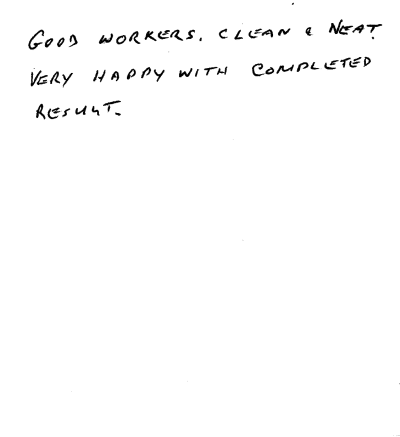 GOOD WORKERS. CLEAN & NEAT.
VERY HAPPY WITH COMPLETED
RESULT.